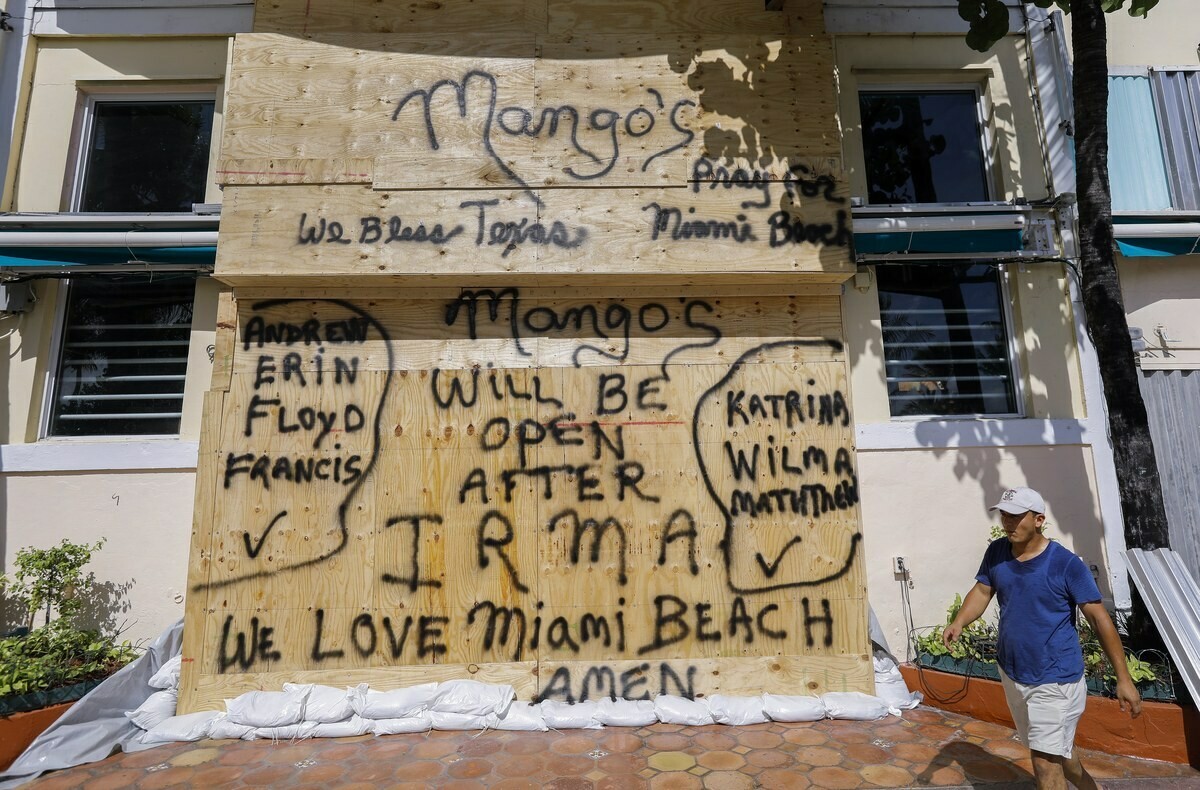 Mango's
Pray For
We Bless Texas
Miami Beach
ANDREW
ERIN
FLOYD
FRANCIS
Mango's
WILL BE
OPEN
AFTER
IRMA
KATRINA
WILMA
MATHTHEW
WE LOVE Miami BEACH
AMEN